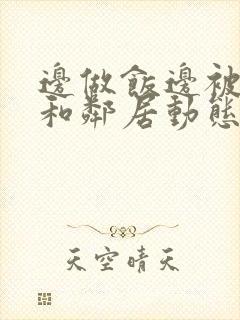 邊做飯邊被
和鄰居動態
天空晴天